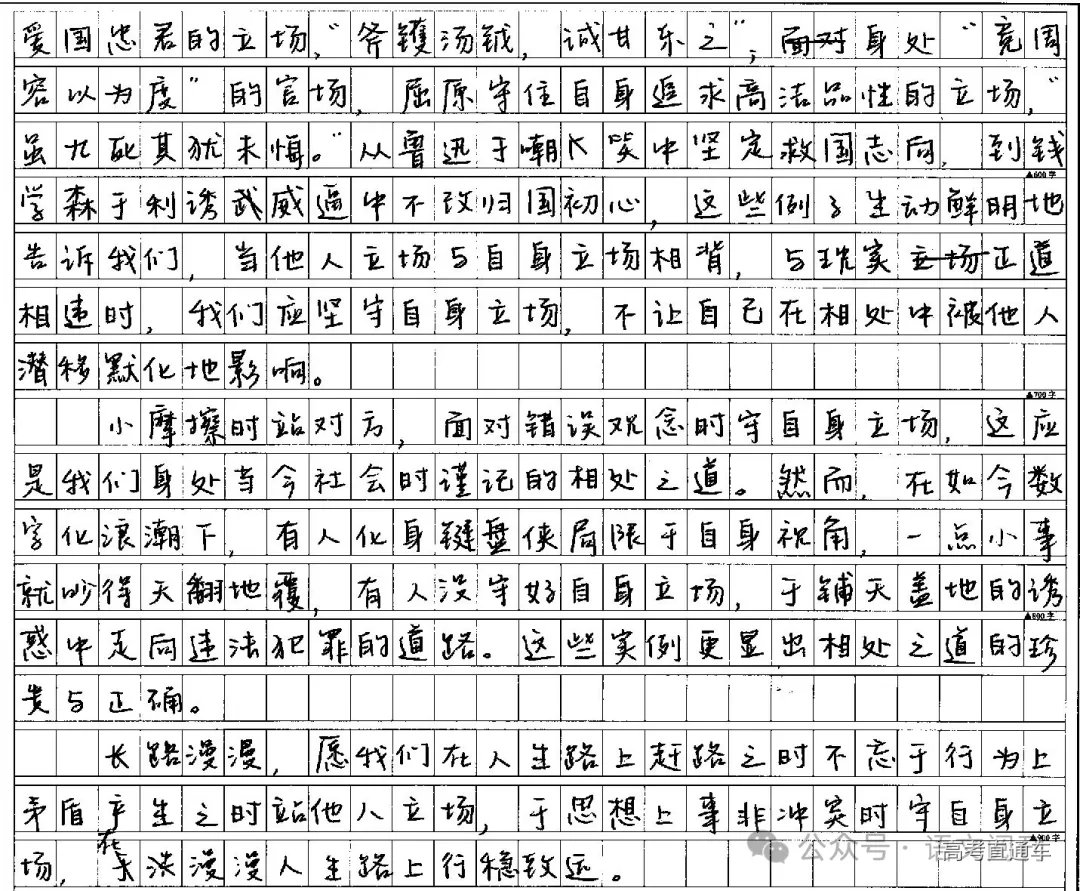 爱国忠君的立场，“斧镬汤钺，诚甘乐之”，面对身处“竞周
容以为度”的官场，屈原守住自身追求高洁品性的立场，“
虽九死其犹未悔。”从鲁迅于嘲笑中坚定救国志向，到钱
▲600字
学森于利诱武威逼中不改归国初心，这些例子生动鲜明地
告诉我们，当他人立场与自身立场相背，与现实立场正道
相违时，我们应坚守自身立场，不让自己在相处中被他人
潜移默化地影响。
▲700字
小摩擦时站对方，面对错误观念时守自身立场，这应
是我们身处当今社会时谨记的相处之道。然而，在如今数
字化浪潮下，有人化身键盘侠局限于自身视角，一点小事
就吵得天翻地覆，有人没守好自身立场，于铺天盖地的诱
▲800字
惑中走向违法犯罪的道路。这些实例更显出相处之道的珍
贵与正确。
长路漫漫，愿我们在人生路上赶路之时不忘于行为上
矛盾产生之时站他人立场，于思想上事非冲突时守自身立
▲900字
场，在漫漫人生路上行稳致远。
公众号·语文
高考直通车